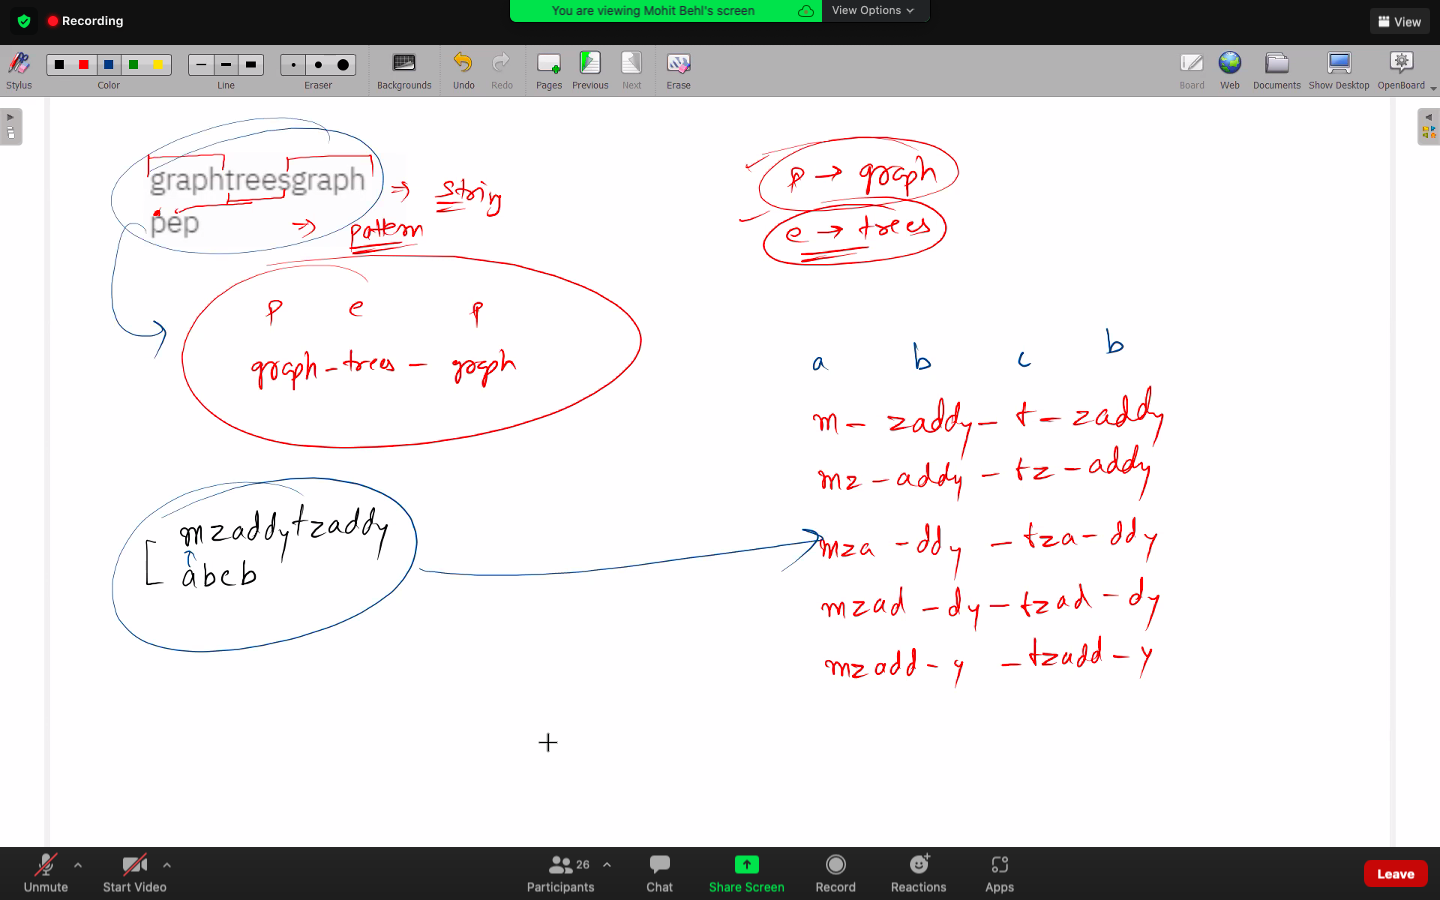 Recording
You are viewing Mohit Behl's screen
View Options
View
Stylus
Color
Line
Eraser
Backgrounds
Undo
Redo
Pages
Previous
Next
Erase
Board
Web
Documents
Show Desktop
OpenBoard
graphtreesgraph → string
pep → pattern
p → graph
e → trees
p e p
graph - trees - graph
a b c b
m - zaddy - t - zaddy
mz - addy - tz - addy
mza - ddy - tza - ddy
mzad - dy - tzad - dy
mzadd - y - tzadd - y
mzaddytzaddy
abcb
Unmute
Start Video
26
Participants
Chat
Share Screen
Record
Reactions
Apps
Leave